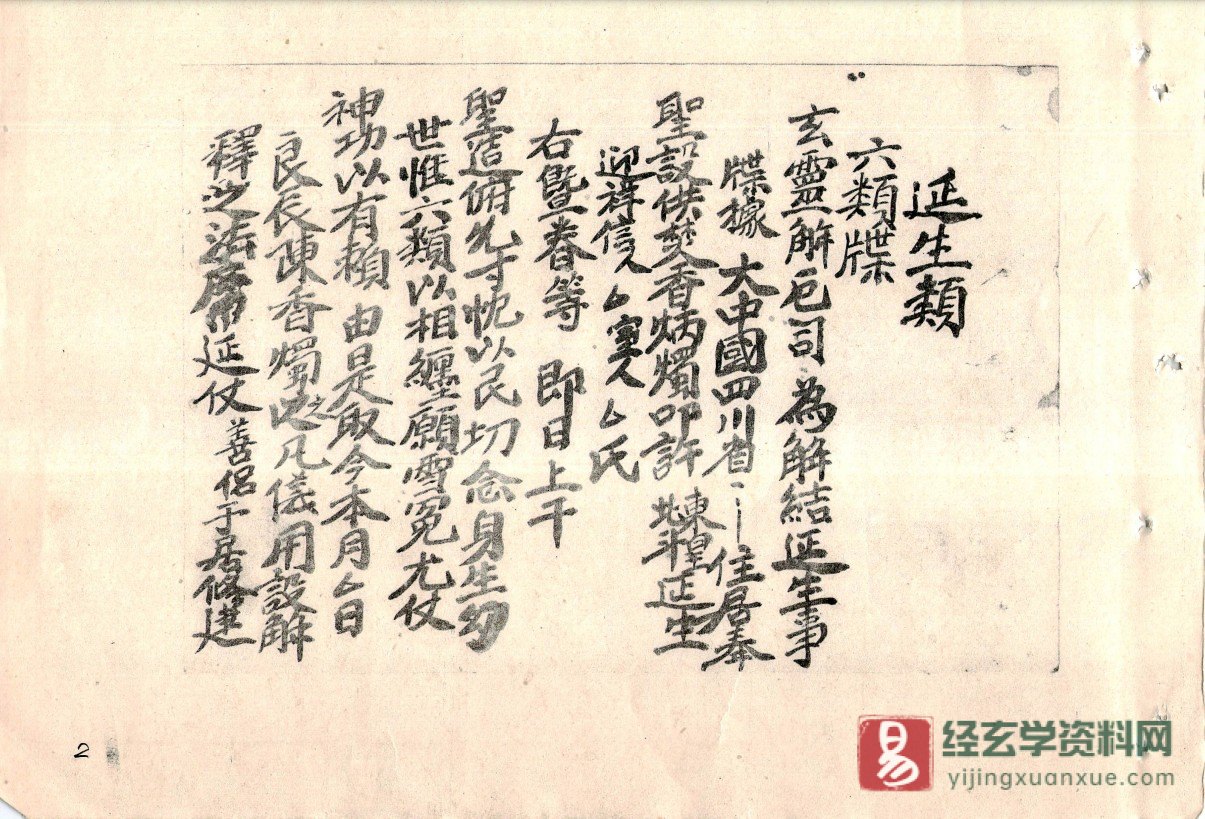 延生類
六類牒
玄靈解厄司 為解結延生事
牒據 大中國四川省 住居奉
聖設供焚香炳燭叩許 東皇北斗延生
迎祥信人厶寞人厶氏
右暨眷等 即日上干
聖造俯允寸忱以民切念身生匆
世惟六類以相纏願雪冤尤仗
神功以有賴 由是取今本月厶日
良辰陳香燭之凡儀用設解
釋之法席延仗 善侶于居修建
2
易 经玄学资料网
yijingxuanxue.com